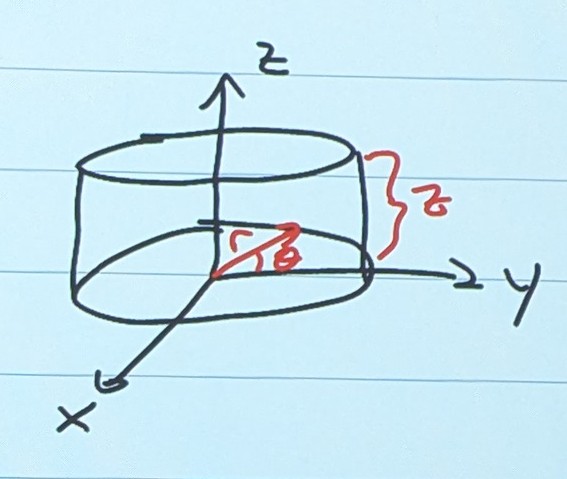 z
z
r
θ
y
x